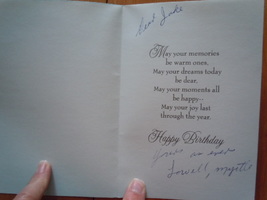 May your memories
be warm ones,
May your dreams today
be dear,
May your moments all
be happy—
May your joy last
through the year.
Happy Birthday